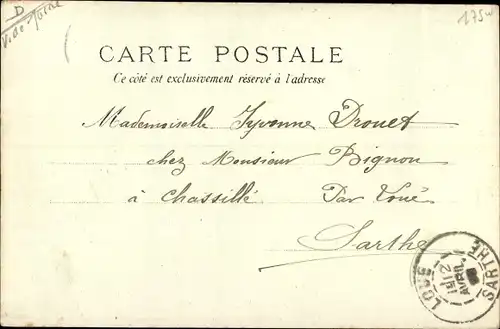 D
175w
CARTE POSTALE
Ce côté est exclusivement réservé à l'adresse
Mademoiselle Yvonne Drouet
chez Monsieur Bignon
à Chassillé. Par Loué
Sarthe
LOUÉ SARTHE
12
AVRIL